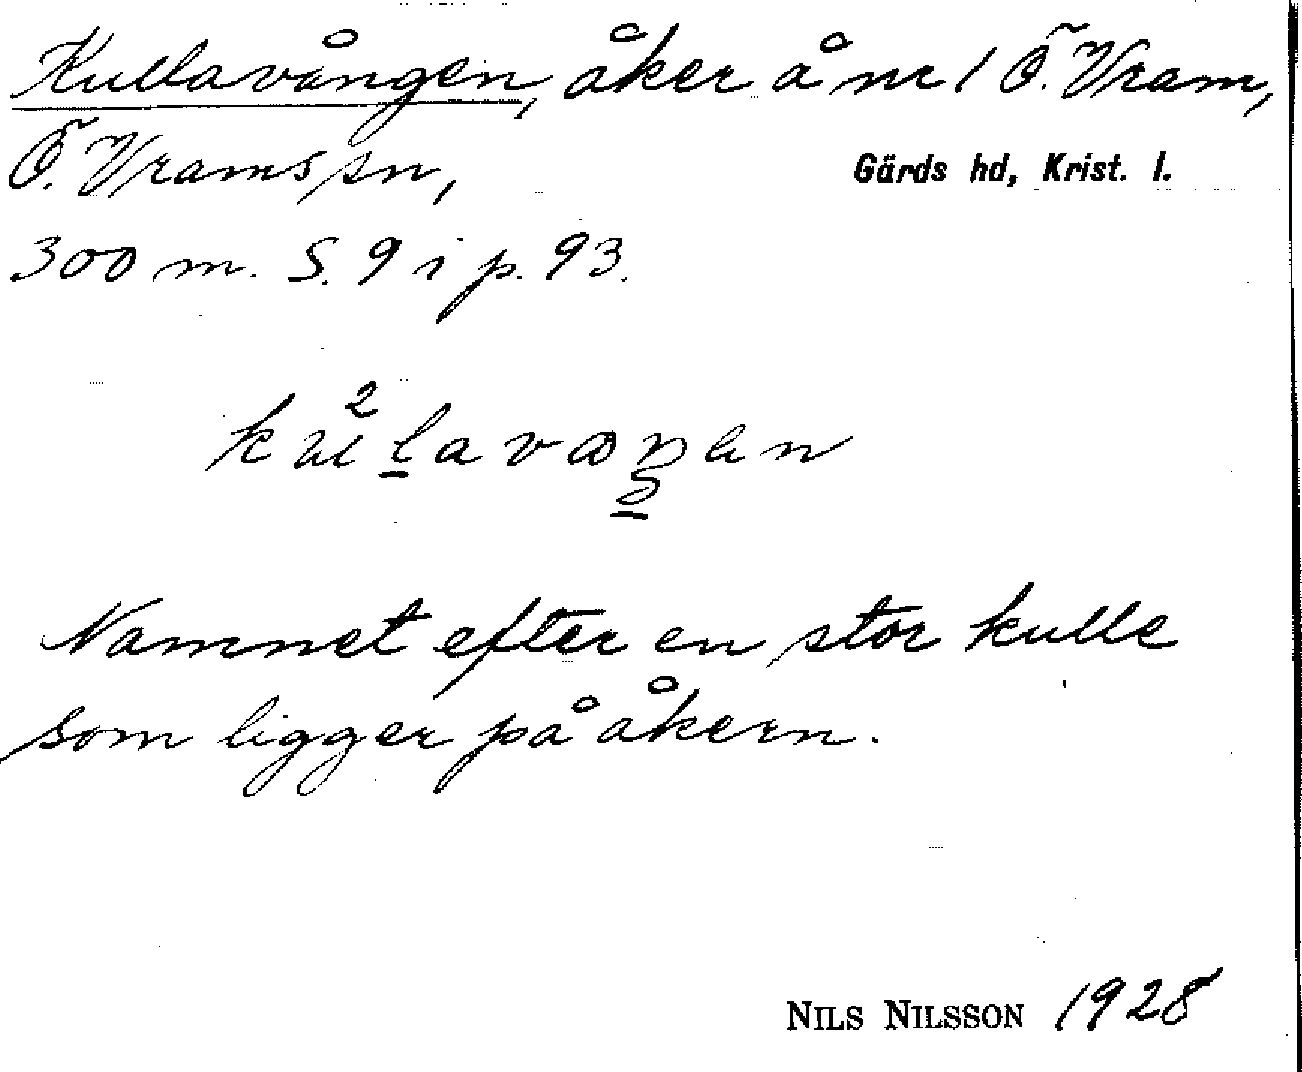 Kullavången, åker å nr 1 Ö. Vram,
Ö. Vrams sn,
Gärds hd, Krist. l.
300 m. S. 9 i p. 93.
Namnet efter en stor kulle
som ligger på åkern.
NILS NILSSON 1928